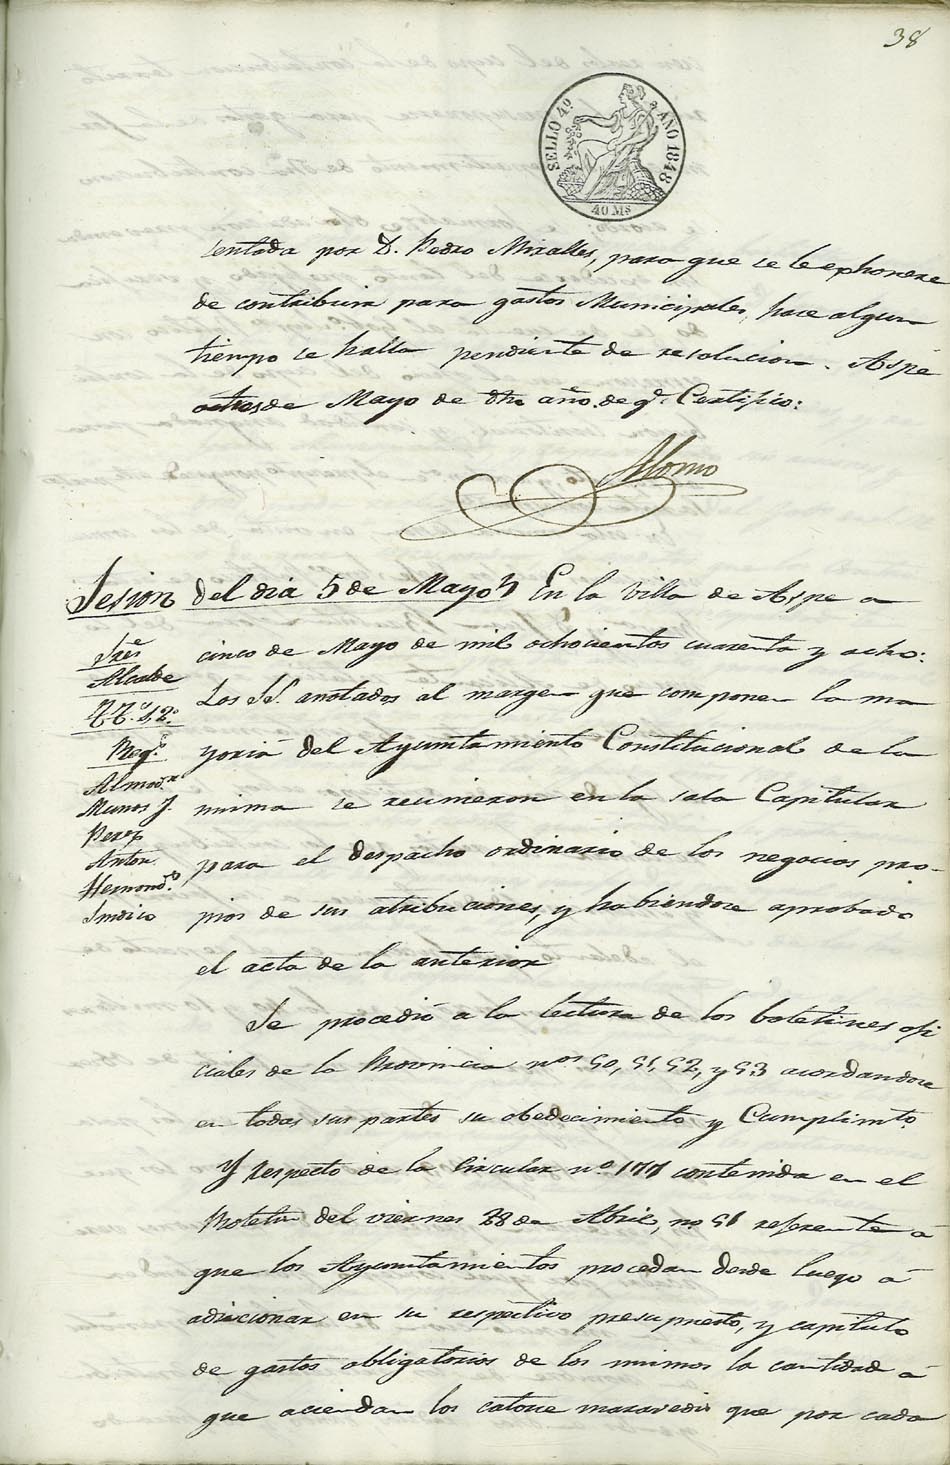 38
SELLO 4º AÑO 1848
40 Ms
sentada por D. Pedro Miralles, para que se le ephonere
de contribuir para gastos Municipales, hace algun
tiempo se halla pendiente de resolucion. Aspe
a tres de Mayo de dho año. de q.e Certifico:
Alonso
Sesion del dia 5 de Mayo
En la Villa de Aspe a
cinco de Mayo de mil ochocientos cuarenta y ocho:
Los SS. anotados al margen que componen la ma
yoria del Ayuntamiento Constitucional de la
misma se reunieron en la sala Capitular
para el despacho ordinario de los negocios pro-
pios de sus atribuciones, y habiendose aprobado
el acta de la anterior
Sres
Alcalde
TT.s 1, 2º
Reg.s
Almod.r
Munos J.
Perez
Anton
Hernand.z
Sindico
Se procedió a la lectura de los boletines ofi
ciales de la Provincia nos 50, 51, 52, y 53 acordandose
en todas sus partes su obedecimiento y Cumplimto.
Y respecto de la Circular nº 177 contenida en el
Boletin del viernes 28 de Abril, nº 51 referente á
que los Ayuntamientos procedan desde luego á
adicionar en su respectivo presupuesto, y capitulo
de gastos obligatorios de los mismos la cantidad á
que aciendan los catorce maravedis que por cada